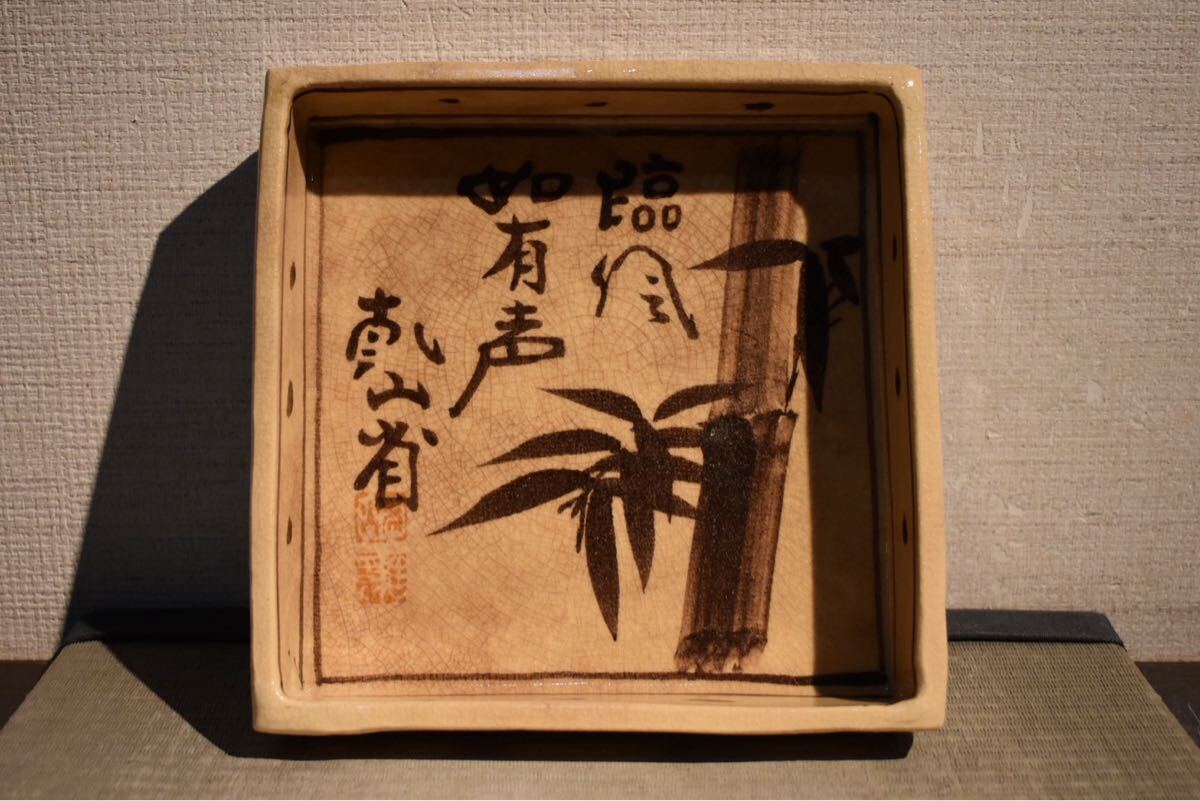 臨風
如有声
乾山省